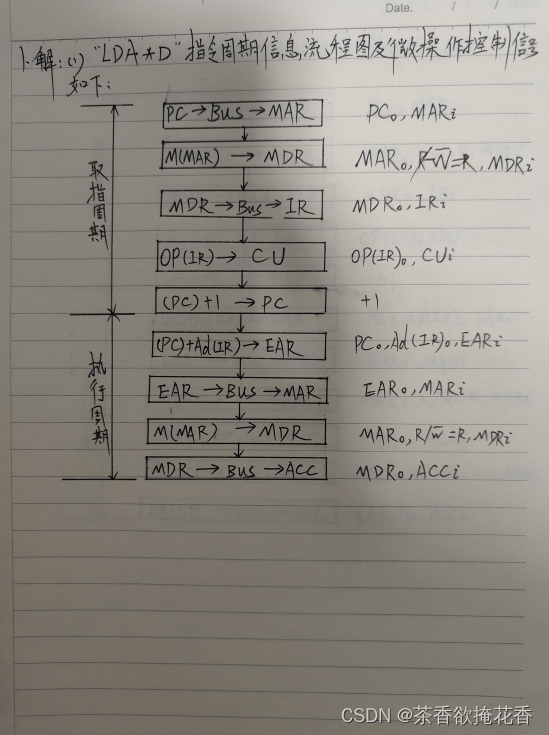 Date. / /
1.解:(1)"LDA *D"指令周期信息流程图及微操作控制信号
如下:
取指周期
PC→Bus→MAR PCo, MARi
M(MAR) → MDR MARo, R/W̅=R, MDRi
MDR→Bus→IR MDRo, IRi
OP(IR)→ CU OP(IR)o, CUi
(PC)+1 → PC +1
执行周期
(PC)+Ad(IR)→EAR PCo, Ad(IR)o, EARi
EAR→BUS→MAR EARo, MARi
M(MAR) →MDR MARo, R/w̅=R, MDRi
MDR→Bus→ACC MDRo, ACCi
CSDN @茶香欲掩花香